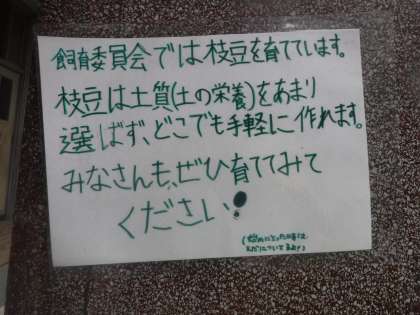 飼育委員会では枝豆を育てています。
枝豆は土質(土の栄養)をあまり
選ばず、どこでも手軽に作れます。
みなさんも、ぜひ育ててみて
ください!